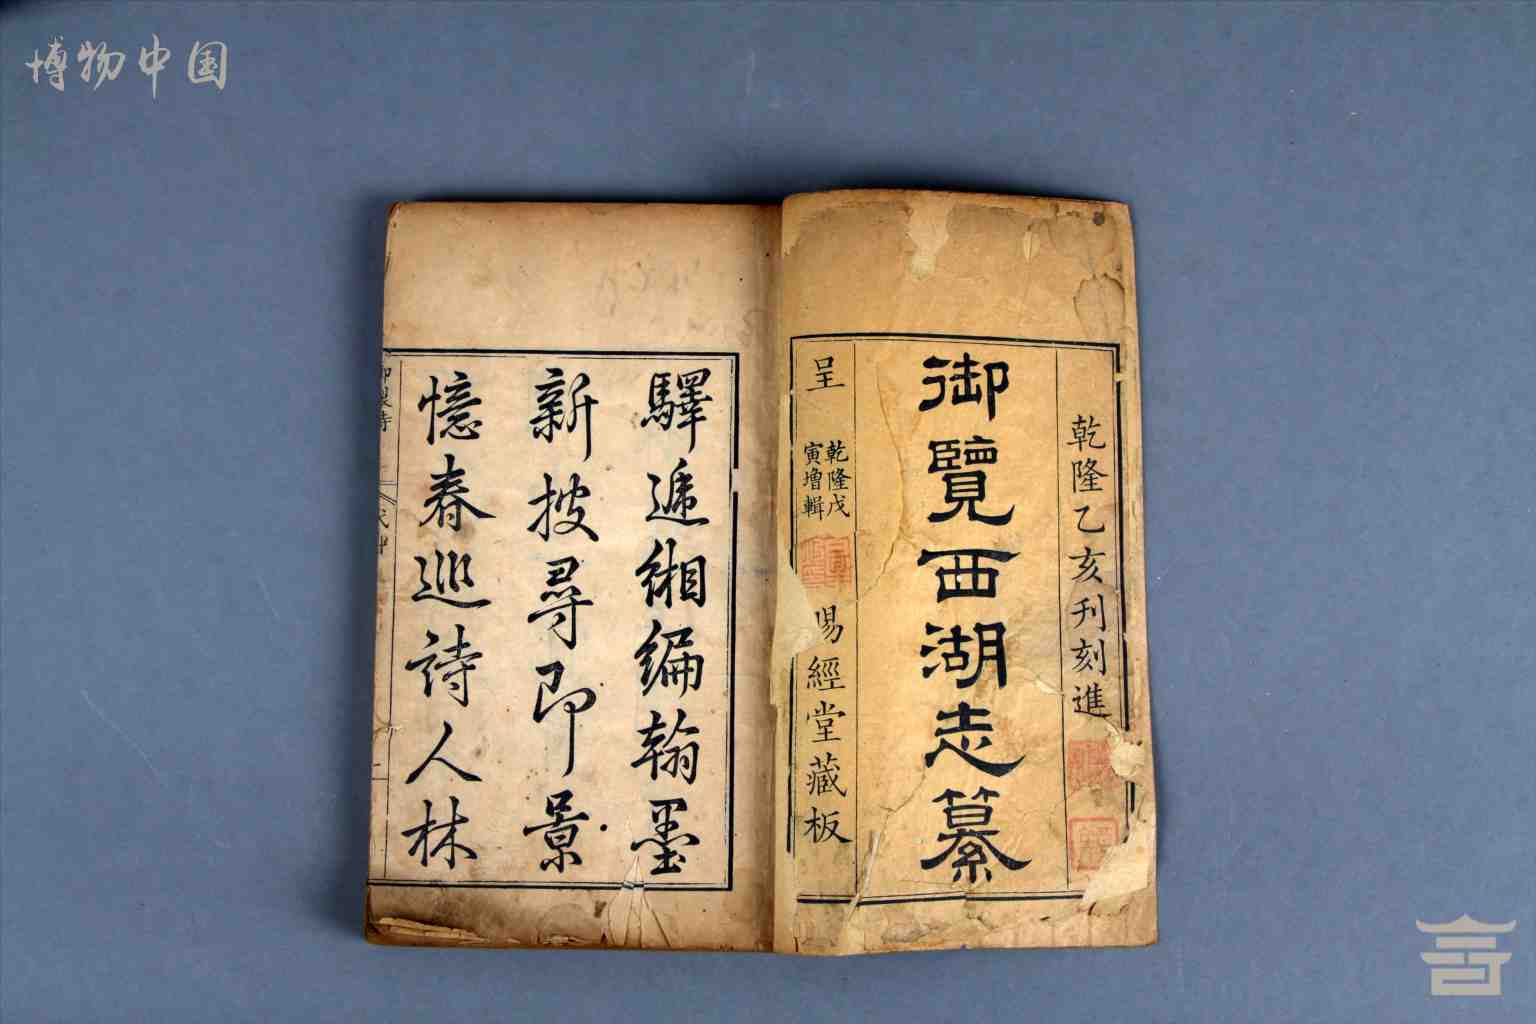 博物中国
乾隆乙亥刊刻進
御覽西湖志纂
呈
乾隆戊
寅增輯
賜經堂藏板
驛遞緗編翰墨
新披尋即景
憶春巡詩人林